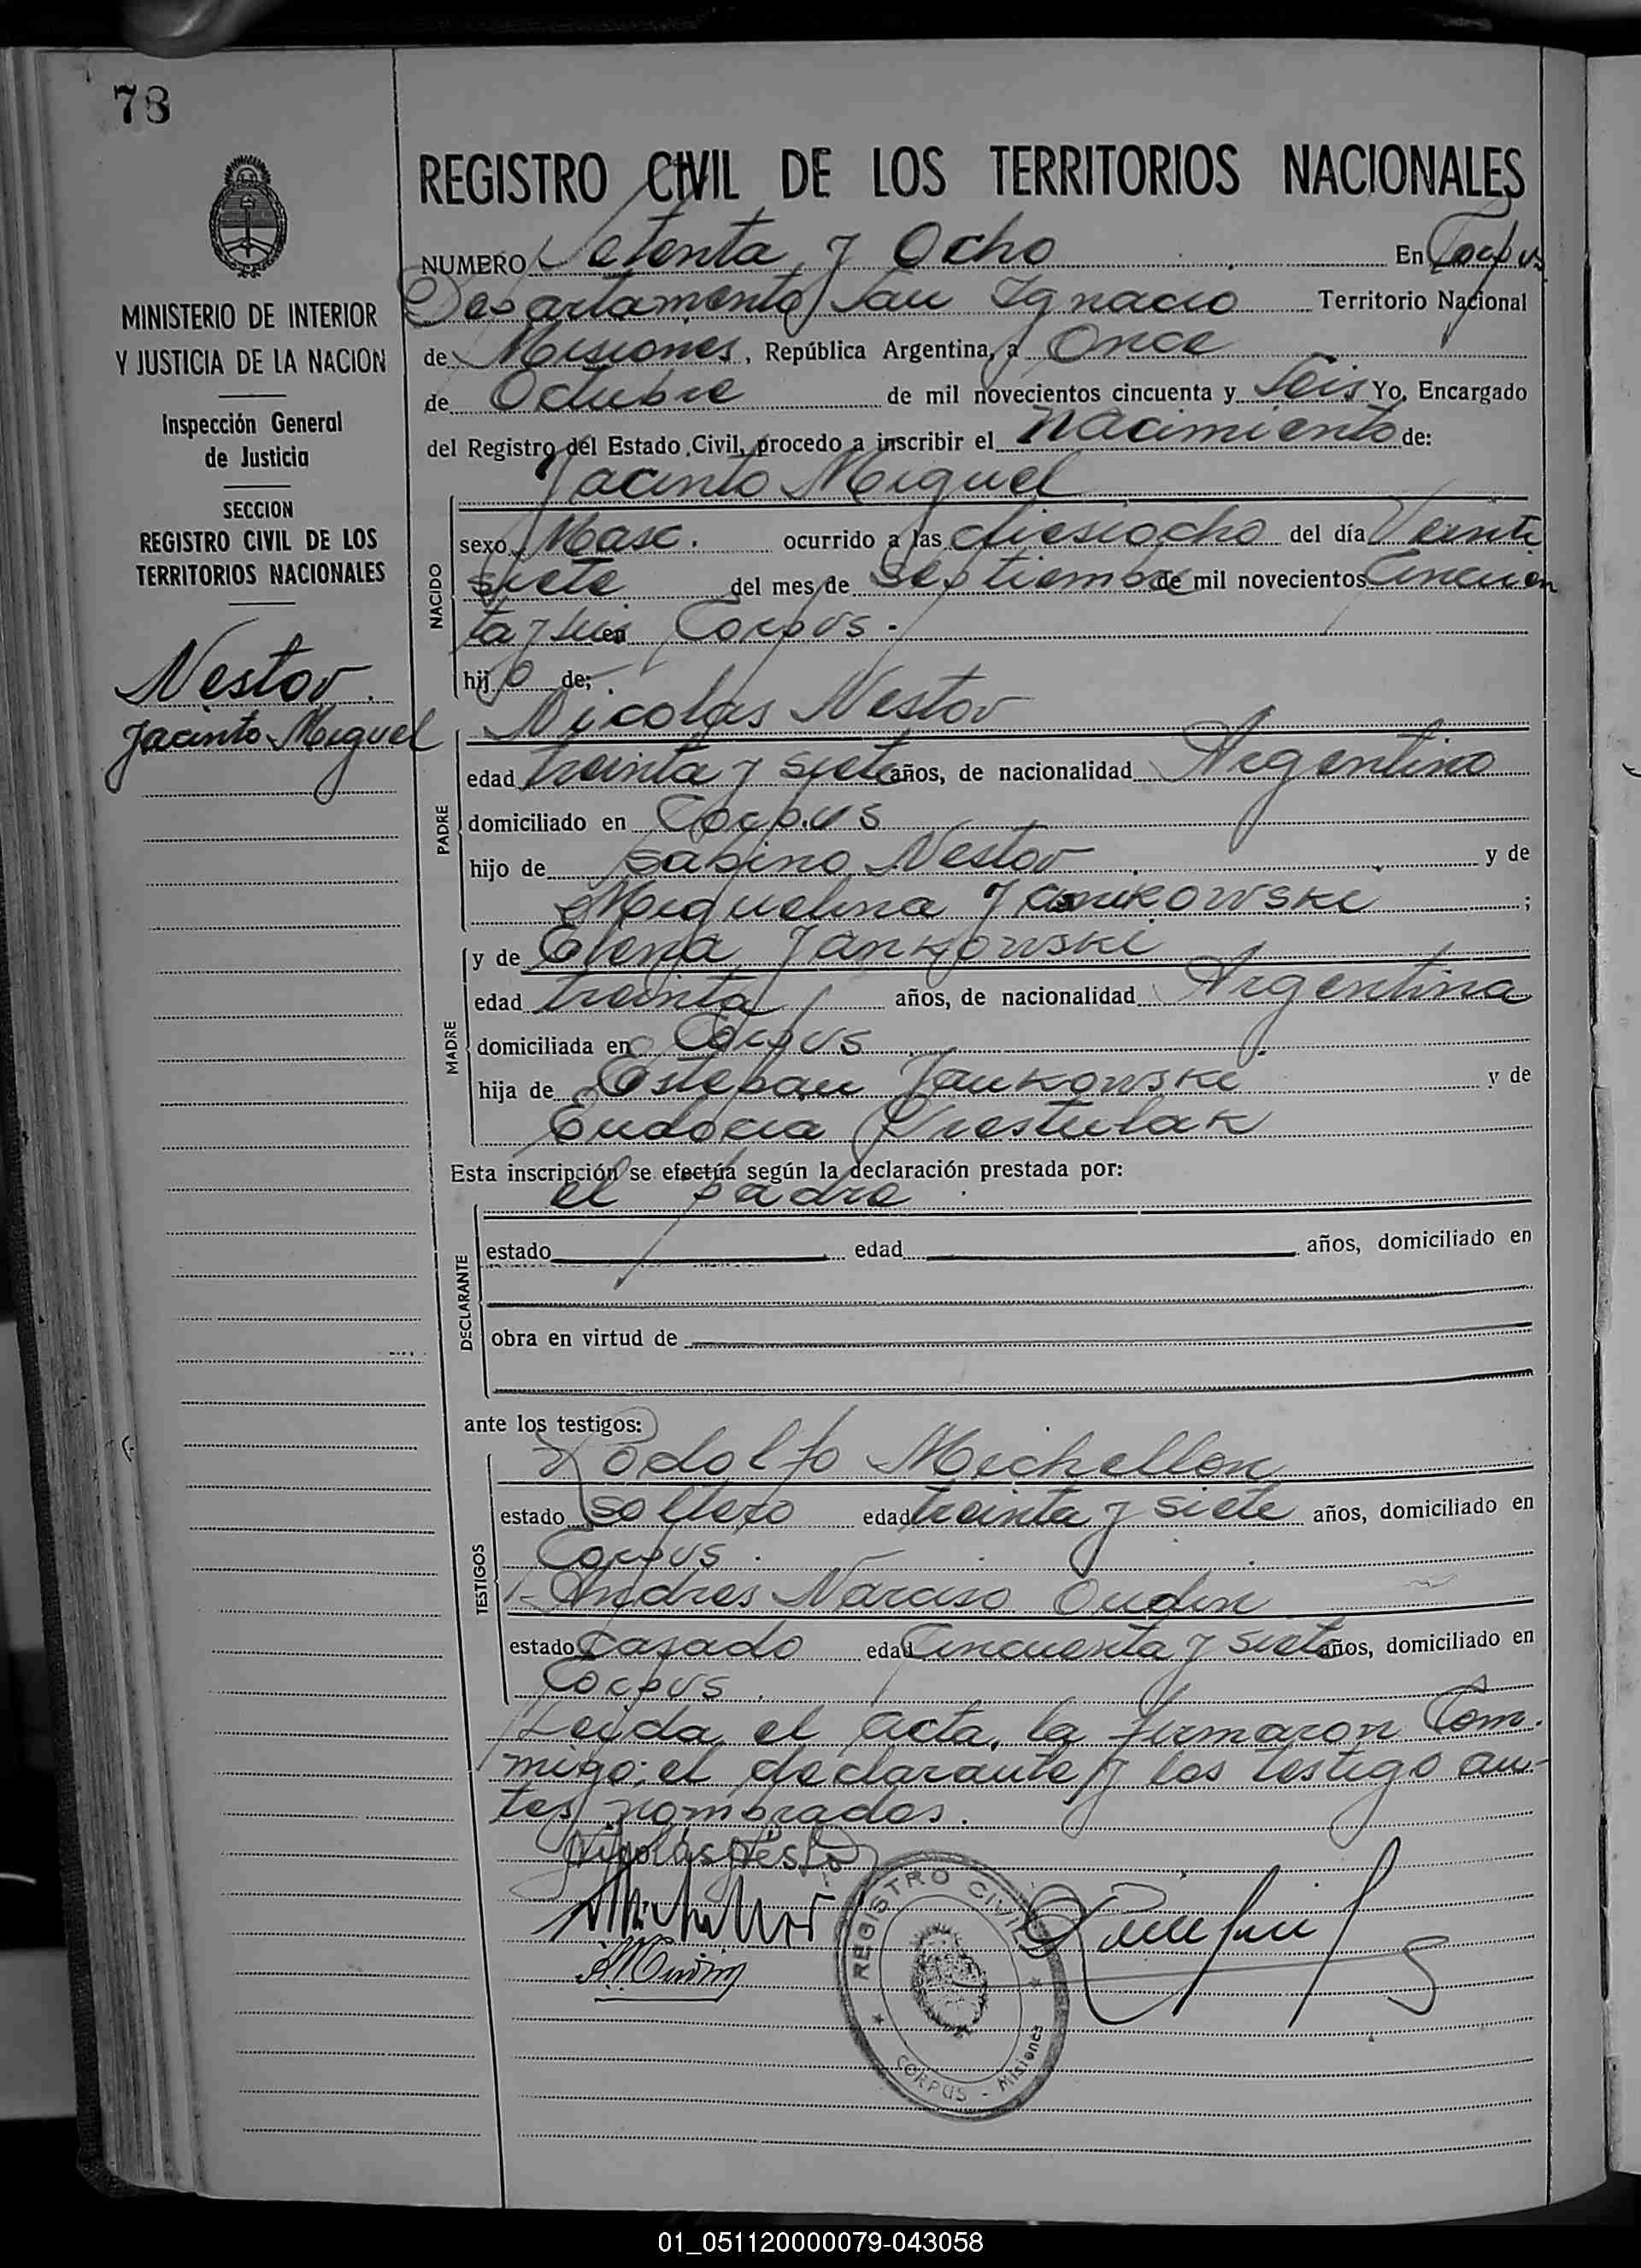 78
REGISTRO CIVIL DE LOS TERRITORIOS NACIONALES
MINISTERIO DE INTERIOR
Y JUSTICIA DE LA NACION
Inspección General
de Justicia
SECCION
REGISTRO CIVIL DE LOS
TERRITORIOS NACIONALES
Nestor
Jacinto Miguel
NUMERO Setenta y Ocho En Corpus
Departamento San Ignacio Territorio Nacional
de Misiones, República Argentina, a Once
de Octubre de mil novecientos cincuenta y Seis Yo, Encargado
del Registro del Estado Civil, procedo a inscribir el Nacimiento de:
Jacinto Miguel
NACIDO
sexo Masc. ocurrido a las diesiocho del día Veinti
siete del mes de Septiembre de mil novecientos Cincuen
ta y seis en Corpus.
hijo de:
Nicolas Nestor
PADRE
edad treinta y siete años, de nacionalidad Argentino
domiciliado en Corpus
hijo de Sabino Nestor y de
Miguelina ;
y de Elena Jankowski
MADRE
edad treinta años, de nacionalidad Argentina
domiciliada en Corpus
hija de Esteban Jankowski y de
Eudocia Prestulak
Esta inscripción se efectúa según la declaración prestada por:
el padre
DECLARANTE
estado edad años, domiciliado en
obra en virtud de
ante los testigos:
Rodolfo Michellon
TESTIGOS
estado soltero edad treinta y siete años, domiciliado en
Corpus.
Andres Narciso Oudin
estado Casado edad Cincuenta y siete años, domiciliado en
Corpus.
Leida el acta, la firmaron Con-
migo; el declarante y los testigo an-
tes nombrados.
Nicolás Nestor
REGISTRO CIVIL
CORPUS - Misiones
01_051120000079-043058